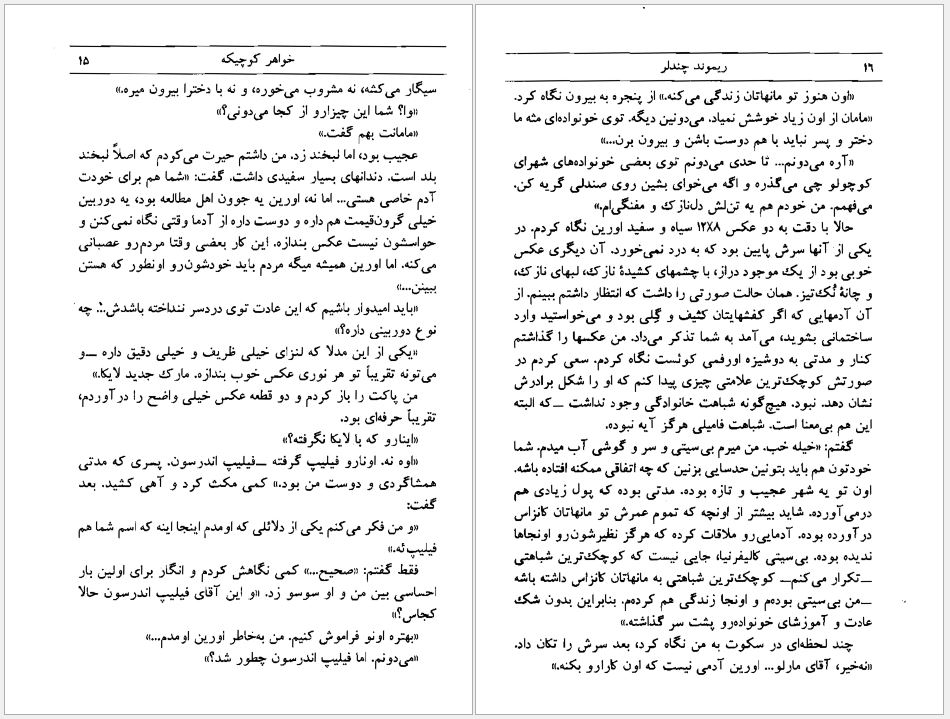 خواهر کوچیکه ۱۵
سیگار می‌کشه، نه مشروب می‌خوره، و نه با دخترا بیرون میره.»
«وا؟ شما این چیزارو از کجا می‌دونی؟»
«مامانت بهم گفت.»
عجیب بود، اما لبخند زد. من داشتم حیرت می‌کردم که اصلاً لبخند
بلد است. دندانهای بسیار سفیدی داشت. گفت: «شما هم برای خودت
آدم خاصی هستی... اما نه، اورین یه جوون اهل مطالعه بود، یه دوربین
خیلی گرون‌قیمت هم داره و دوست داره از آدما وقتی نگاه نمی‌کنن و
حواسشون نیست عکس بندازه. این کار بعضی وقتا مردم‌رو عصبانی
می‌کنه. اما اورین همیشه میگه مردم باید خودشون‌رو اونطور که هستن
ببینن...»
«باید امیدوار باشیم که این عادت توی دردسر ننداخته باشدش... چه
نوع دوربینی داره؟»
«یکی از این مدلا که لنزای خیلی ظریف و خیلی دقیق داره ـ و
می‌تونه تقریباً تو هر نوری عکس خوب بندازه. مارک جدید لایکا.»
من پاکت را باز کردم و دو قطعه عکس خیلی واضح را درآوردم،
تقریباً حرفه‌ای بود.
«اینارو که با لایکا نگرفته؟»
«اوه نه. اونارو فیلیپ گرفته ـ فیلیپ اندرسون. پسری که مدتی
همشاگردی و دوست من بود.» کمی مکث کرد و آهی کشید. بعد
گفت:
«و من فکر می‌کنم یکی از دلائلی که اومدم اینجا اینه که اسم شما هم
فیلیپ‌ئه.»
فقط گفتم: «صحیح...» کمی نگاهش کردم و انگار برای اولین بار
احساسی بین من و او سوسو زد. «و این آقای فیلیپ اندرسون حالا
کجاس؟»
«بهتره اونو فراموش کنیم. من به‌خاطر اورین اومدم...»
«می‌دونم. اما فیلیپ اندرسون چطور شد؟»
۱۶ ریموند چندلر
«اون هنوز تو مانهاتان زندگی می‌کنه.» از پنجره به بیرون نگاه کرد.
«مامان از اون زیاد خوشش نمیاد. می‌دونین دیگه. توی خونواده‌ای مثه ما
دختر و پسر نباید با هم دوست باشن و بیرون برن...»
«آره می‌دونم... تا حدی می‌دونم توی بعضی خونواده‌های شهرای
کوچولو چی می‌گذره و اگه می‌خوای بشین روی صندلی گریه کن.
می‌فهمم. من خودم هم یه تن‌لش دل‌نازک و مفنگی‌ام.»
حالا با دقت به دو عکس ۸×۱۲ سیاه و سفید اورین نگاه کردم. در
یکی از آنها سرش پایین بود که به درد نمی‌خورد. آن دیگری عکس
خوبی بود از یک موجود دراز، با چشمهای کشیدهٔ نازک، لبهای نازک،
و چانهٔ نُک‌تیز. همان حالت صورتی را داشت که انتظار داشتم ببینم. از
آن آدمهایی که اگر کفشهایتان کثیف و گِلی بود و می‌خواستید وارد
ساختمانی بشوید، می‌آمد به شما تذکر می‌داد. من عکسها را گذاشتم
کنار و مدتی به دوشیزه اورفمی کوئست نگاه کردم. سعی کردم در
صورتش کوچک‌ترین علامتی چیزی پیدا کنم که او را شکل برادرش
نشان دهد. نبود. هیچ‌گونه شباهت خانوادگی وجود نداشت ـ که البته
این هم بی‌معنا است. شباهت فامیلی هرگز آیه نبوده.
گفتم: «خیله خب. من میرم بی‌سیتی و سر و گوشی آب میدم. شما
خودتون هم باید بتونین حدسایی بزنین که چه اتفاقی ممکنه افتاده باشه.
اون تو یه شهر عجیب و تازه بوده. مدتی بوده که پول زیادی هم
درمی‌آورده. شاید بیشتر از اونچه که تموم عمرش تو مانهاتان کانزاس
درآورده بوده. آدمایی‌رو ملاقات کرده که هرگز نظیرشون‌رو اونجاها
ندیده بوده. بی‌سیتی کالیفرنیا، جایی نیست که کوچک‌ترین شباهتی
ـ تکرار می‌کنم ـ کوچک‌ترین شباهتی به مانهاتان کانزاس داشته باشه
ـ من بی‌سیتی بوده‌م و اونجا زندگی هم کرده‌م. بنابراین بدون شک
عادت و آموزشای خونواده‌رو پشت سر گذاشته.»
چند لحظه‌ای در سکوت به من نگاه کرد، بعد سرش را تکان داد.
«نه‌خیر، آقای مارلو... اورین آدمی نیست که اون کارارو بکنه.»